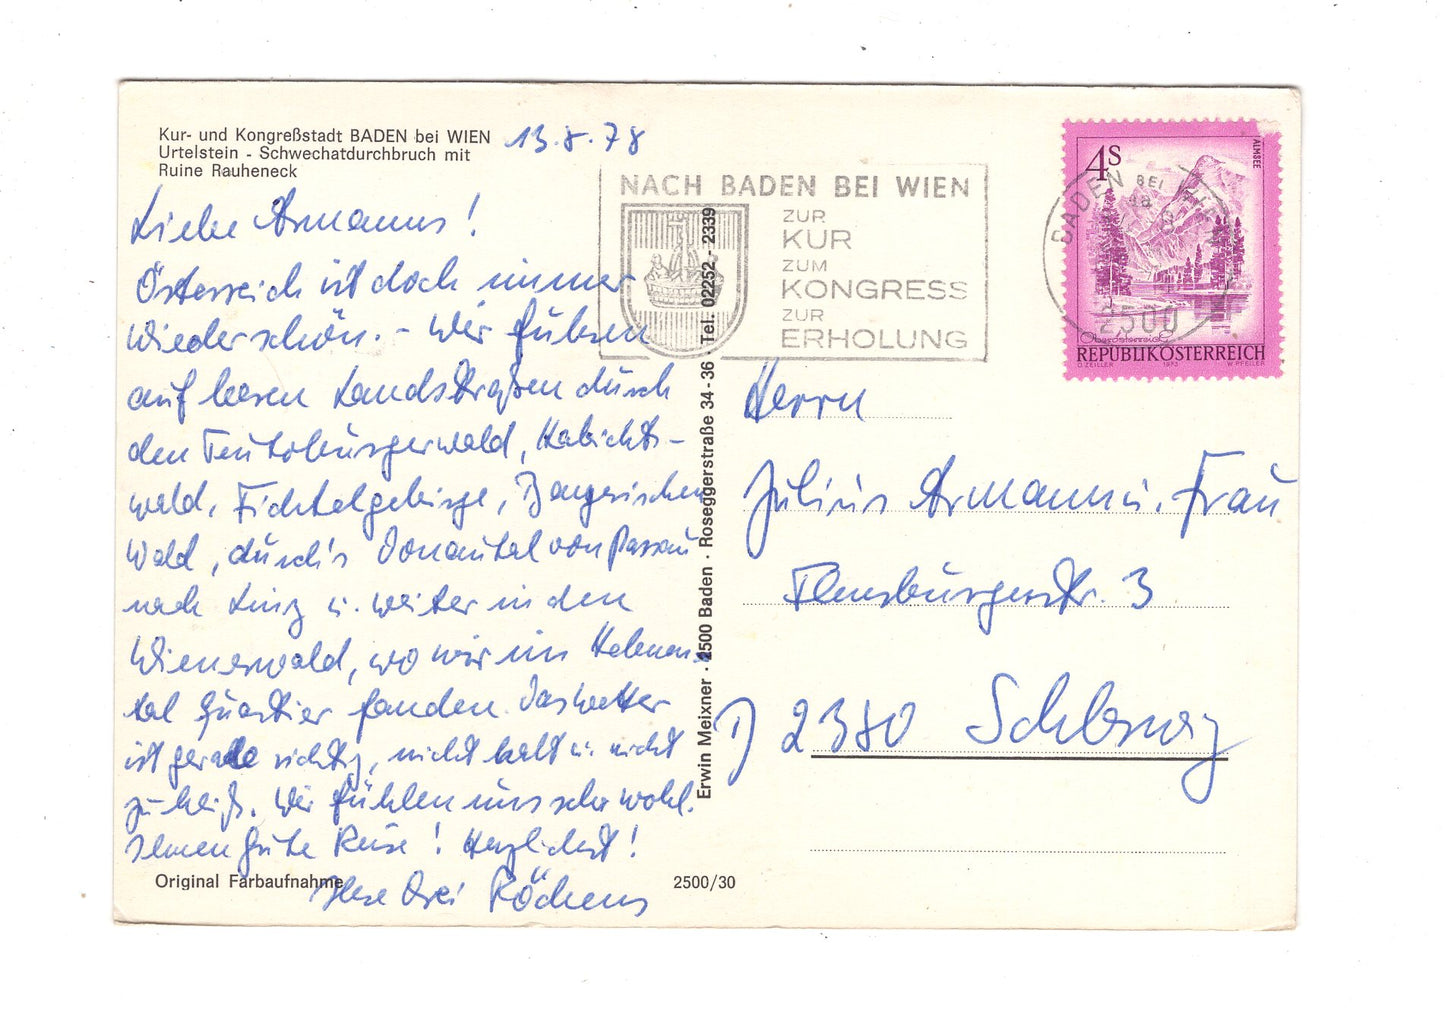 Kur- und Kongreßstadt BADEN bei WIEN
Urtelstein - Schwechatdurchbruch mit
Ruine Rauheneck
13.8.78
Liebe Armanns!
Österreich ist doch immer
wieder schön. - Wir fuhren
auf leeren Landstraßen durch
den Teutoburgerwald, Habichts-
wald, Fichtelgebirge, Bayerischen
Wald, durch's Donautal von Passau
nach Linz u. weiter in den
Wienerwald, wo wir im Helenen-
tal Quartier fanden. Das Wetter
ist gerade richtig, nicht kalt u. nicht
zu heiß. Wir fühlen uns sehr wohl.
Ihnen gute Reise! Herzlichst!
Ihre drei Röchens
Original Farbaufnahme
2500/30
Erwin Meixner · 2500 Baden · Roseggerstraße 34-36 · Tel. 02252 - 2339
NACH BADEN BEI WIEN
ZUR
KUR
ZUM
KONGRESS
ZUR
ERHOLUNG
BADEN BEI WIEN
2500
4S
ALMSEE
Oberösterreich
REPUBLIK ÖSTERREICH
O. ZEILLER 1973 W. PFEILER
Herrn
Julius Armann u. Frau
Flensburgerstr. 3
D 2380 Schleswig